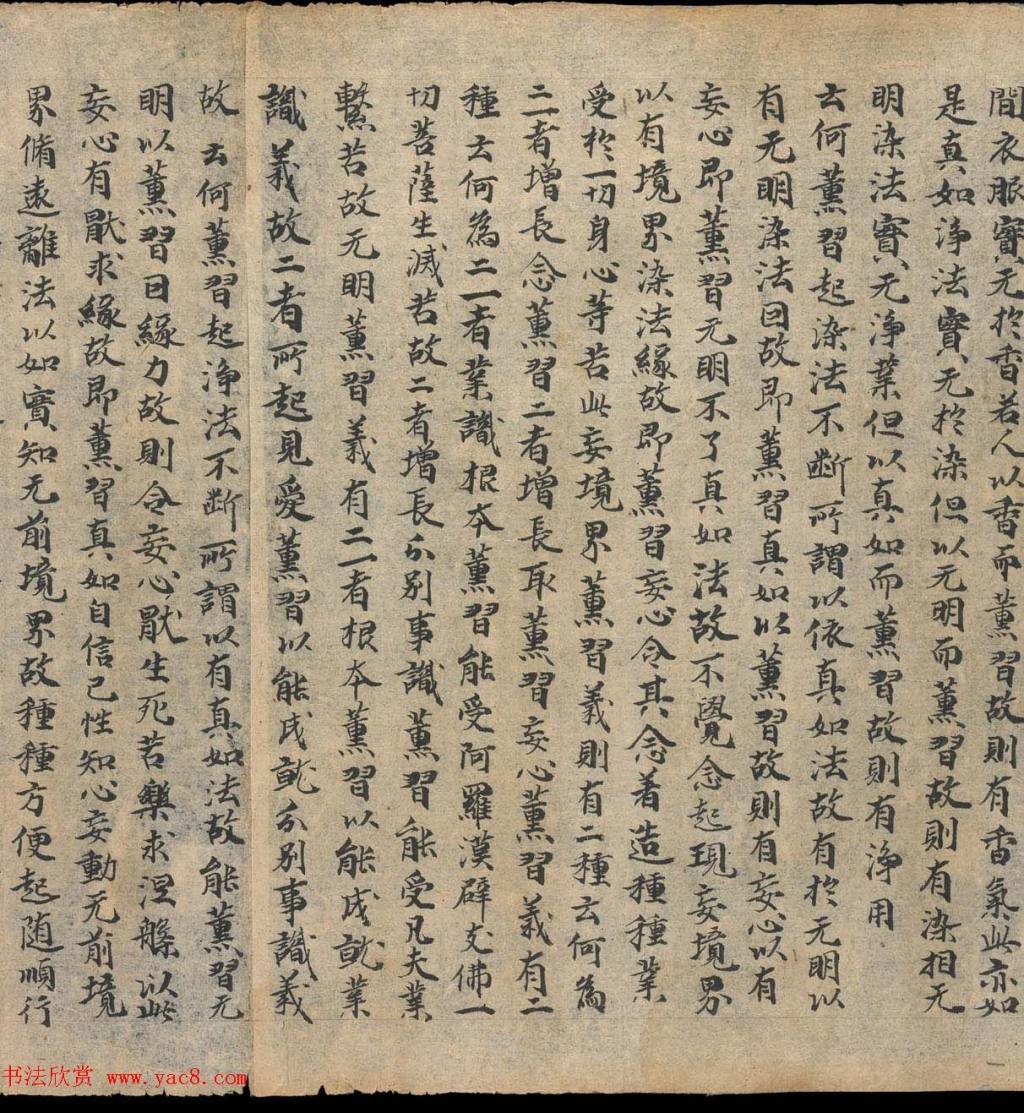 間衣服實无於香若人以香而薰習故則有香氣此亦如
是真如淨法實无於染但以无明而薰習故則有染相无
明染法實无淨業但以真如而薰習故則有淨用
云何薰習起染法不斷所謂以依真如法故有於无明以
有无明染法因故即薰習真如以薰習故則有妄心以有
妄心即薰習无明不了真如法故不覺念起現妄境界
以有境界染法緣故即薰習妄心令其念著造種種業
受於一切身心等苦此妄境界薰習義則有二種云何為
二一者增長念薰習二者增長取薰習妄心薰習義有二
種云何為二一者業識根本薰習能受阿羅漢辟支佛一
切菩薩生滅苦故二者增長分別事識薰習能受凡夫業
繫苦故无明薰習義有二一者根本薰習以能成就業
識義故二者所起見愛薰習以能成就分別事識義
故 云何薰習起淨法不斷所謂以有真如法故能薰習无
明以薰習因緣力故則令妄心厭生死苦樂求涅槃以此
妄心有厭求緣故即薰習真如自信己性知心妄動无前境
界脩遠離法以如實知无前境界故種種方便起随順行
书法欣赏 www.yac8.com